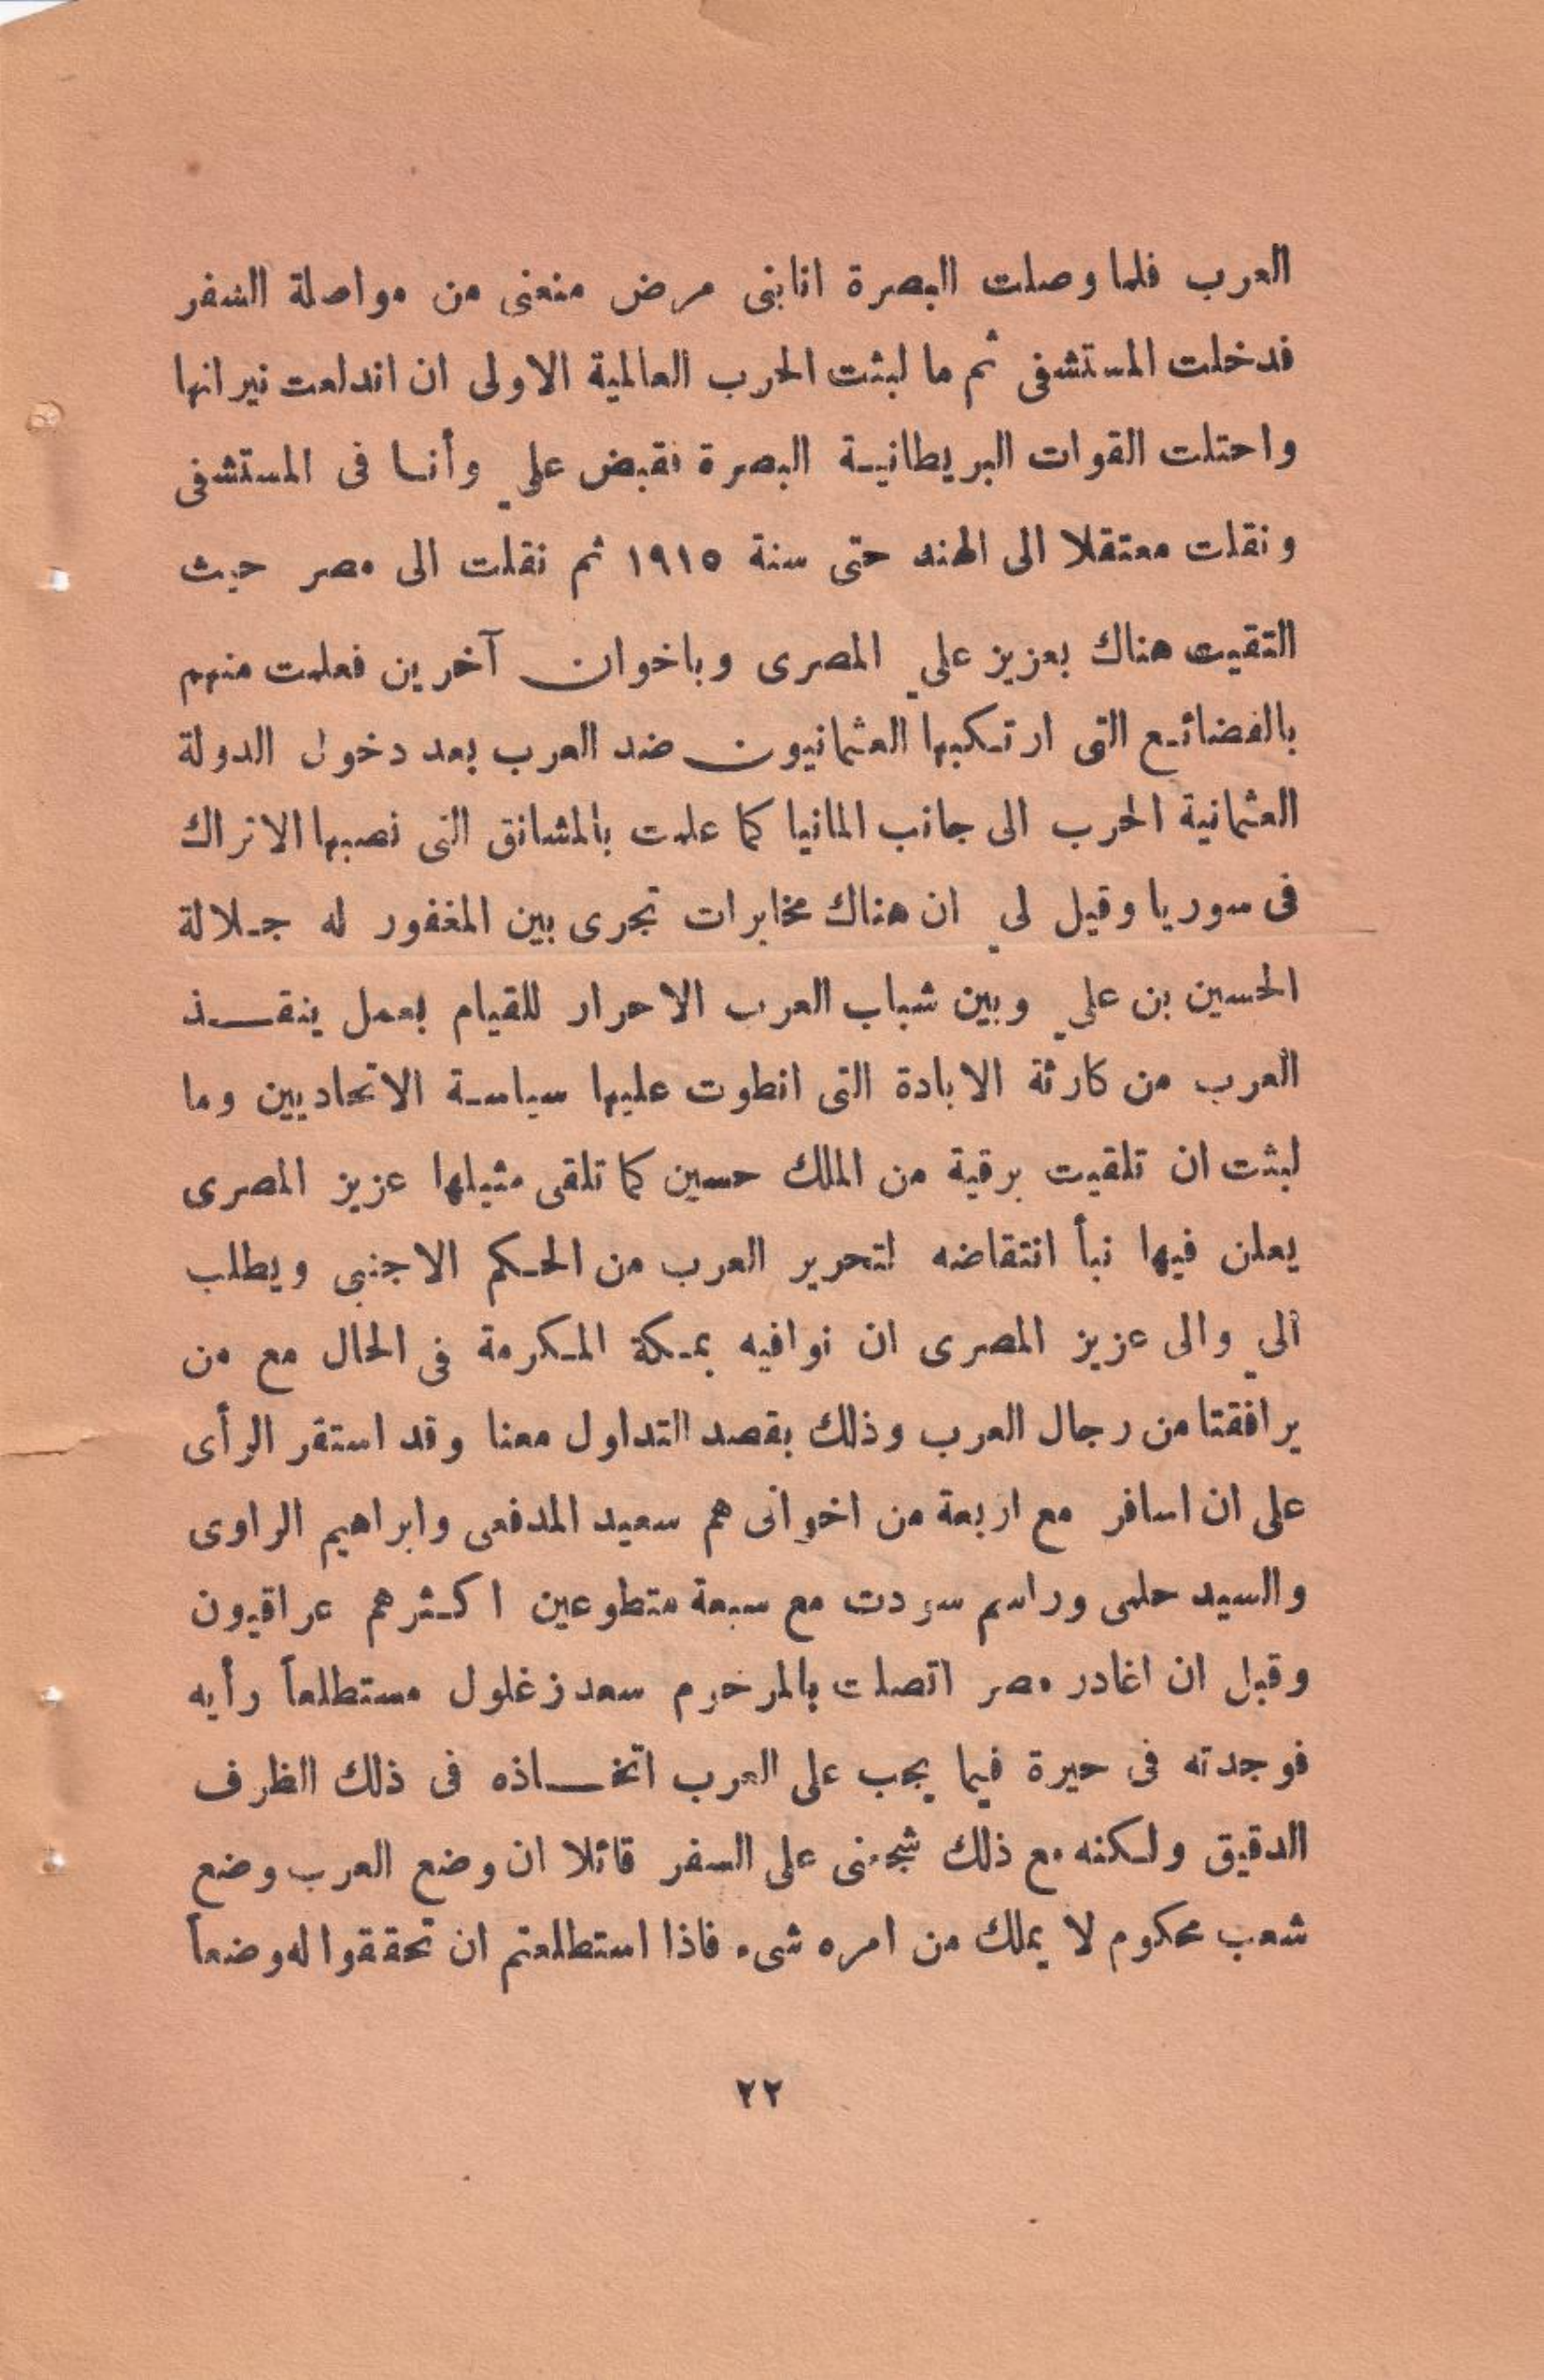 العرب فلما وصلت البصرة انابنى مرض منعنى من مواصلة السفر
فدخلت المستشفى ثم ما لبثت الحرب العالمية الاولى ان اندلعت نيرانها
واحتلت القوات البريطانية البصرة فقبض علي وأنا فى المستشفى
ونقلت معتقلا الى الهند حتى سنة ١٩١٥ ثم نقلت الى مصر حيث
التقيت هناك بعزيز علي المصرى وباخوان آخرين فعلمت منهم
بالفضائع التى ارتكبها العثمانيون ضد العرب بعد دخول الدولة
العثمانية الحرب الى جانب المانيا كما علمت بالمشانق التى نصبها الاتراك
فى سوريا وقيل لي ان هناك مخابرات تجرى بين المغفور له جلالة
الحسين بن علي وبين شباب العرب الاحرار للقيام بعمل ينقذ
العرب من كارثة الابادة التى انطوت عليها سياسة الاتحاديين وما
لبثت ان تلقيت برقية من الملك حسين كما تلقى مثيلها عزيز المصرى
يعلن فيها نبأ انتقاضه لتحرير العرب من الحكم الاجنبى ويطلب
الي والى عزيز المصرى ان نوافيه بمكة المكرمة فى الحال مع من
يرافقتا من رجال العرب وذلك بقصد التداول معنا وقد استقر الرأى
على ان اسافر مع اربعة من اخوانى هم سعيد المدفعى وابراهيم الراوى
والسيد حلمى وراسم سردت مع سبعة متطوعين اكثرهم عراقيون
وقبل ان اغادر مصر اتصلت بالمرحوم سعد زغلول مستطلعاً رأيه
فوجدته فى حيرة فيما يجب على العرب اتخاذه فى ذلك الظرف
الدقيق ولكنه مع ذلك شجعنى على السفر قائلا ان وضع العرب وضع
شعب محكوم لا يملك من امره شىء فاذا استطلعتم ان تحققوا له وضعاً
٢٢